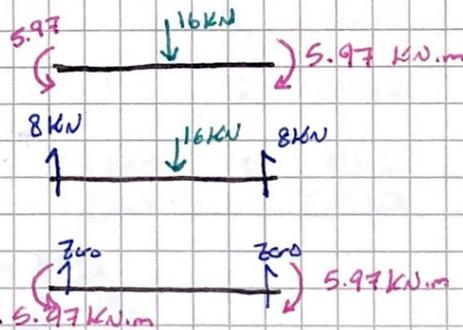 16KN
5.97 5.97 KN.m
8KN 16KN 8KN
Zero Zero
5.97KN.m 5.97KN.m